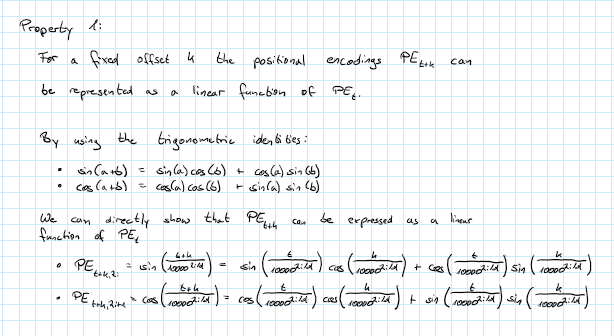 Property 1:
For a fixed offset k the positional encodings PE_{t+k} can
be represented as a linear function of PE_t.
By using the trigonometric identities:
• sin(a+b) = sin(a)cos(b) + cos(a)sin(b)
• cos(a+b) = cos(a)cos(b) + sin(a)sin(b)
We can directly show that PE_{t+k} can be expressed as a linear
function of PE_t
• PE_{t+k,2i} = sin(\frac{t+k}{10000^{2i/d}}) = sin(\frac{t}{10000^{2i/d}}) cos(\frac{k}{10000^{2i/d}}) + cos(\frac{t}{10000^{2i/d}}) sin(\frac{k}{10000^{2i/d}})
• PE_{t+k,2i+1} = cos(\frac{t+k}{10000^{2i/d}}) = cos(\frac{t}{10000^{2i/d}}) cos(\frac{k}{10000^{2i/d}}) + sin(\frac{t}{10000^{2i/d}}) sin(\frac{k}{10000^{2i/d}})